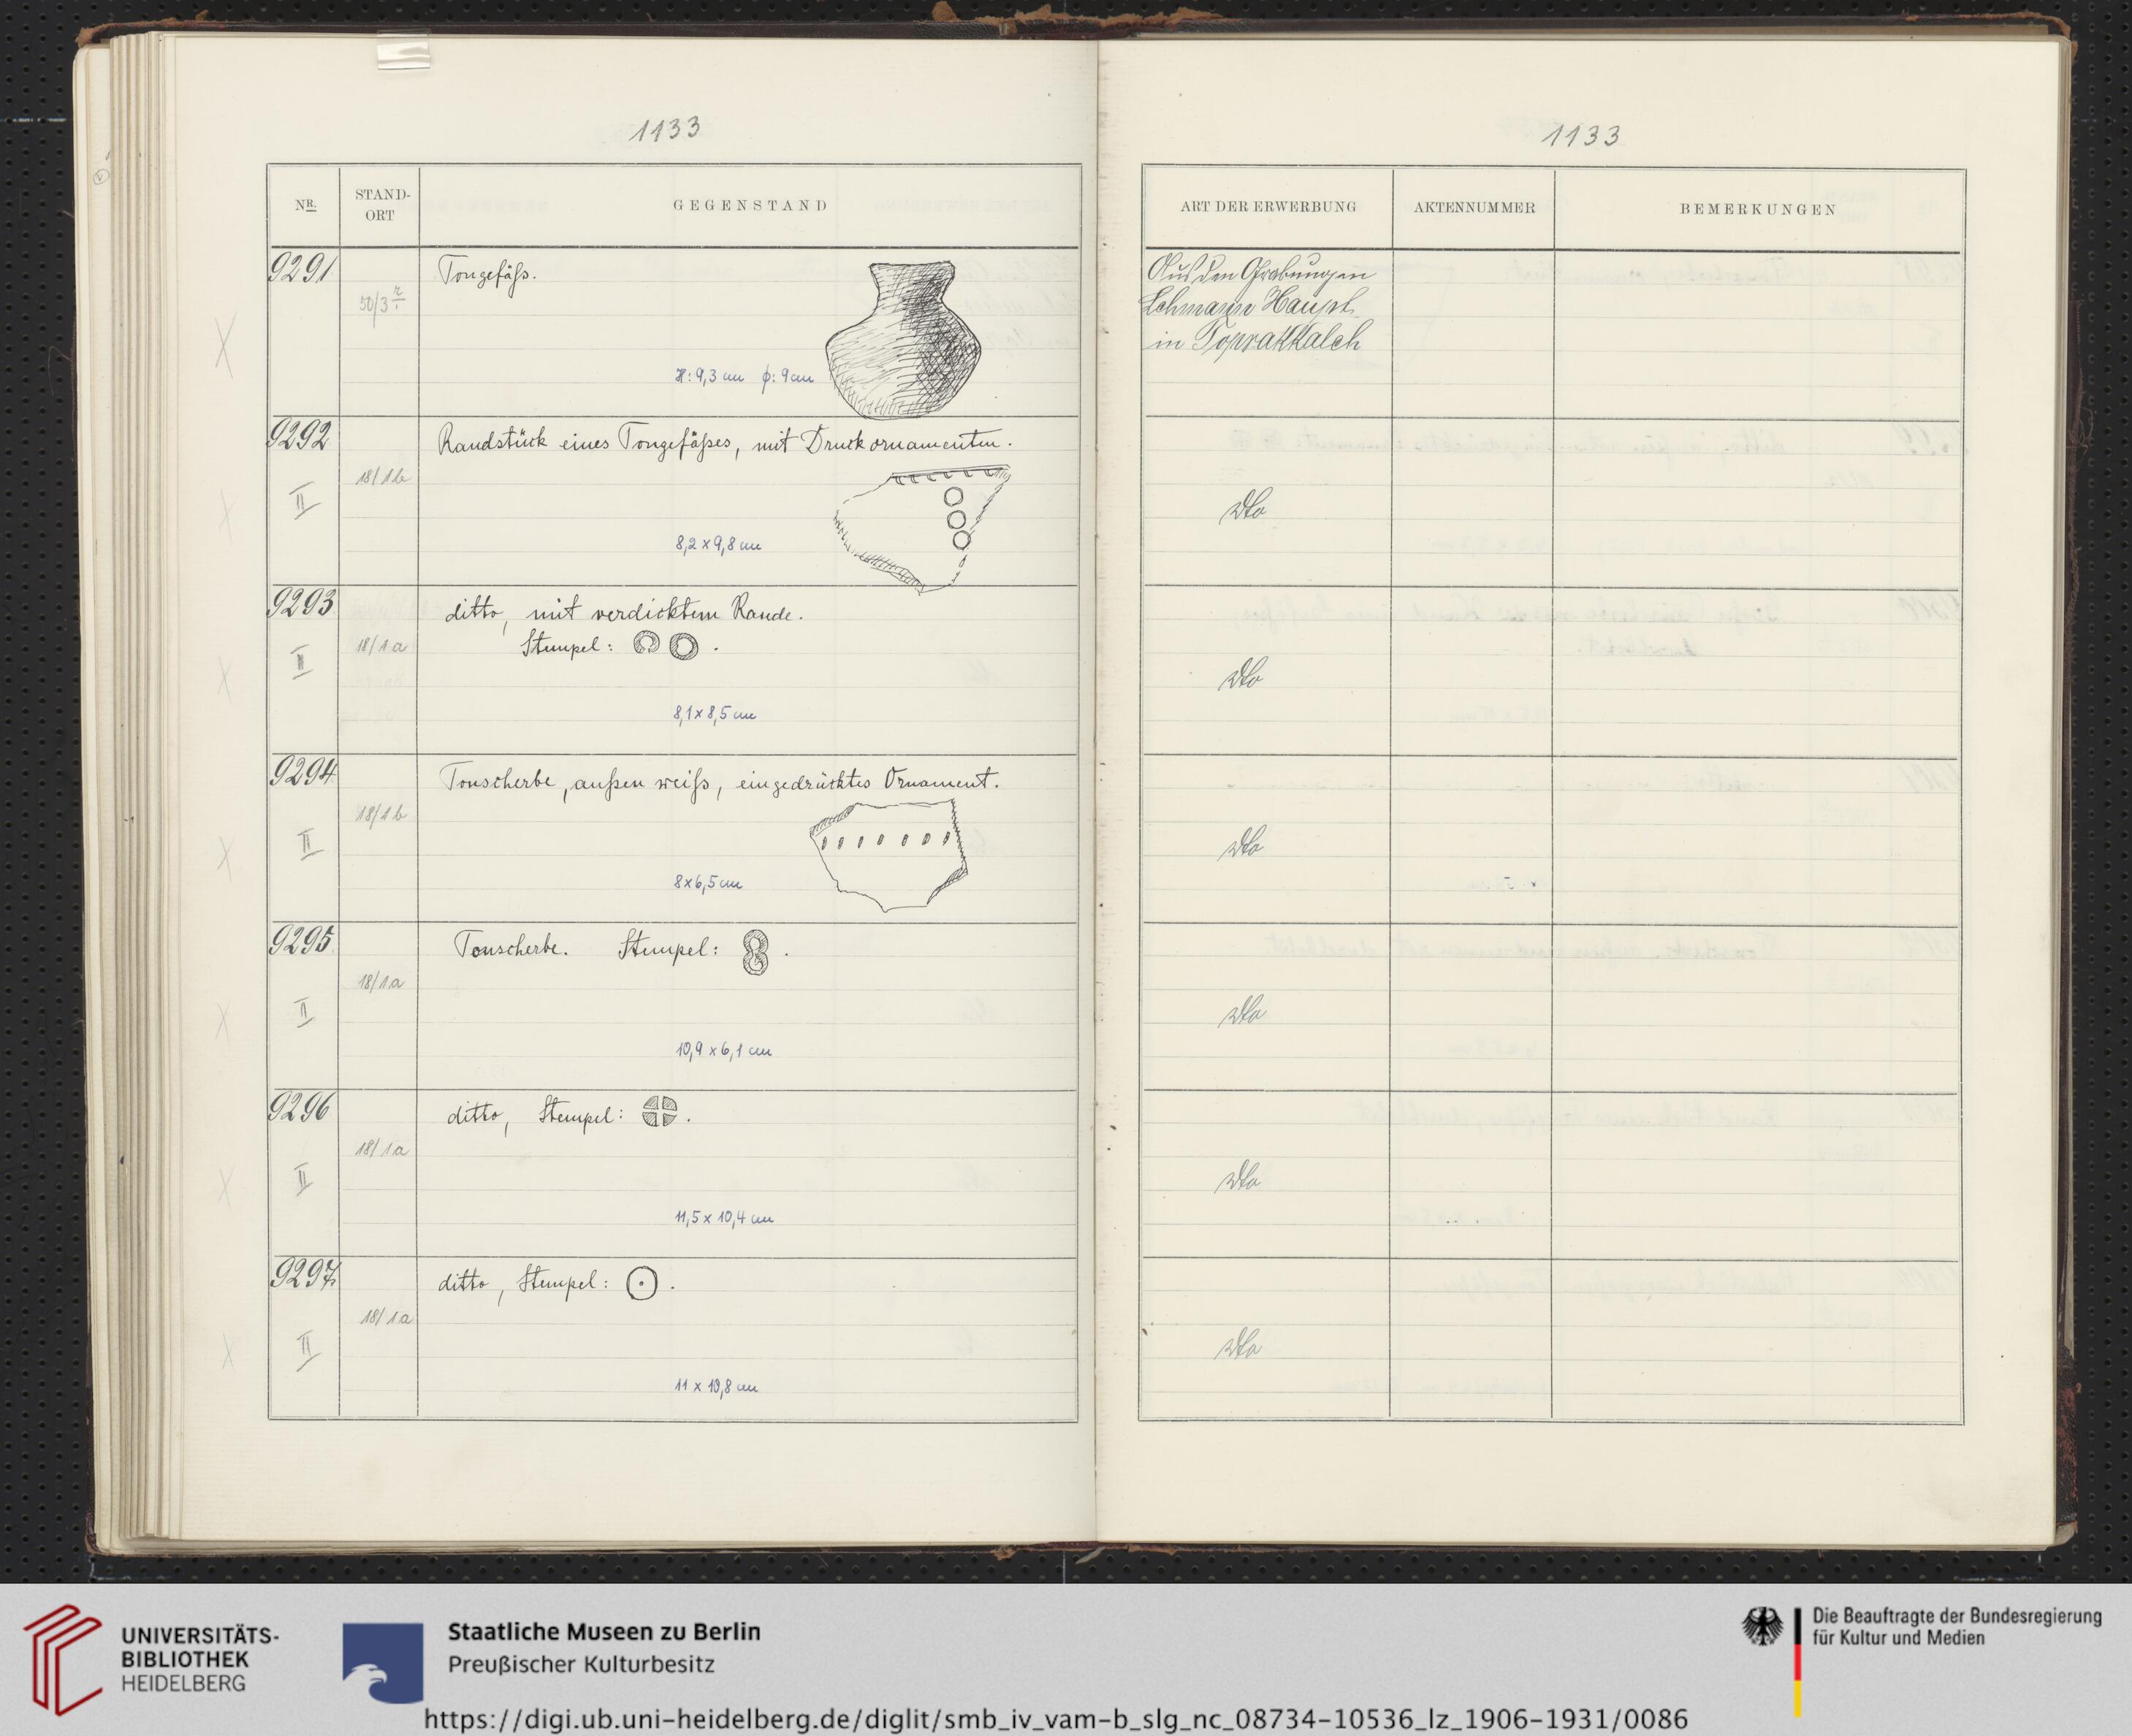 1133
NR.
STAND-
ORT
GEGENSTAND
9291
Tongefäß.
50/3
H: 9,3 cm ϕ: 9 cm
9292
Randstück eines Tongefäßes, mit Druckornamenten.
18/1b
II
8,2 x 9,8 cm
9293
ditto, mit verdicktem Rande.
18/1a
Stempel: .
II
8,1 x 8,5 cm
9294
Tonscherbe, außen weiß, eingedrücktes Ornament.
18/1b
II
8 x 6,5 cm
9295
Tonscherbe. Stempel: .
18/1a
II
10,9 x 6,1 cm
9296
ditto, Stempel: .
18/1a
II
11,5 x 10,4 cm
9297
ditto, Stempel: .
18/1a
II
11 x 10,8 cm
1133
ART DER ERWERBUNG
AKTENNUMMER
BEMERKUNGEN
Aus den Grabungen
Lehmann Haupt
in Toprakkaleh
dto
dto
dto
dto
dto
dto
UNIVERSITÄTS-
BIBLIOTHEK
HEIDELBERG
Staatliche Museen zu Berlin
Preußischer Kulturbesitz
Die Beauftragte der Bundesregierung
für Kultur und Medien
https://digi.ub.uni-heidelberg.de/diglit/smb_iv_vam-b_slg_nc_08734-10536_lz_1906-1931/0086